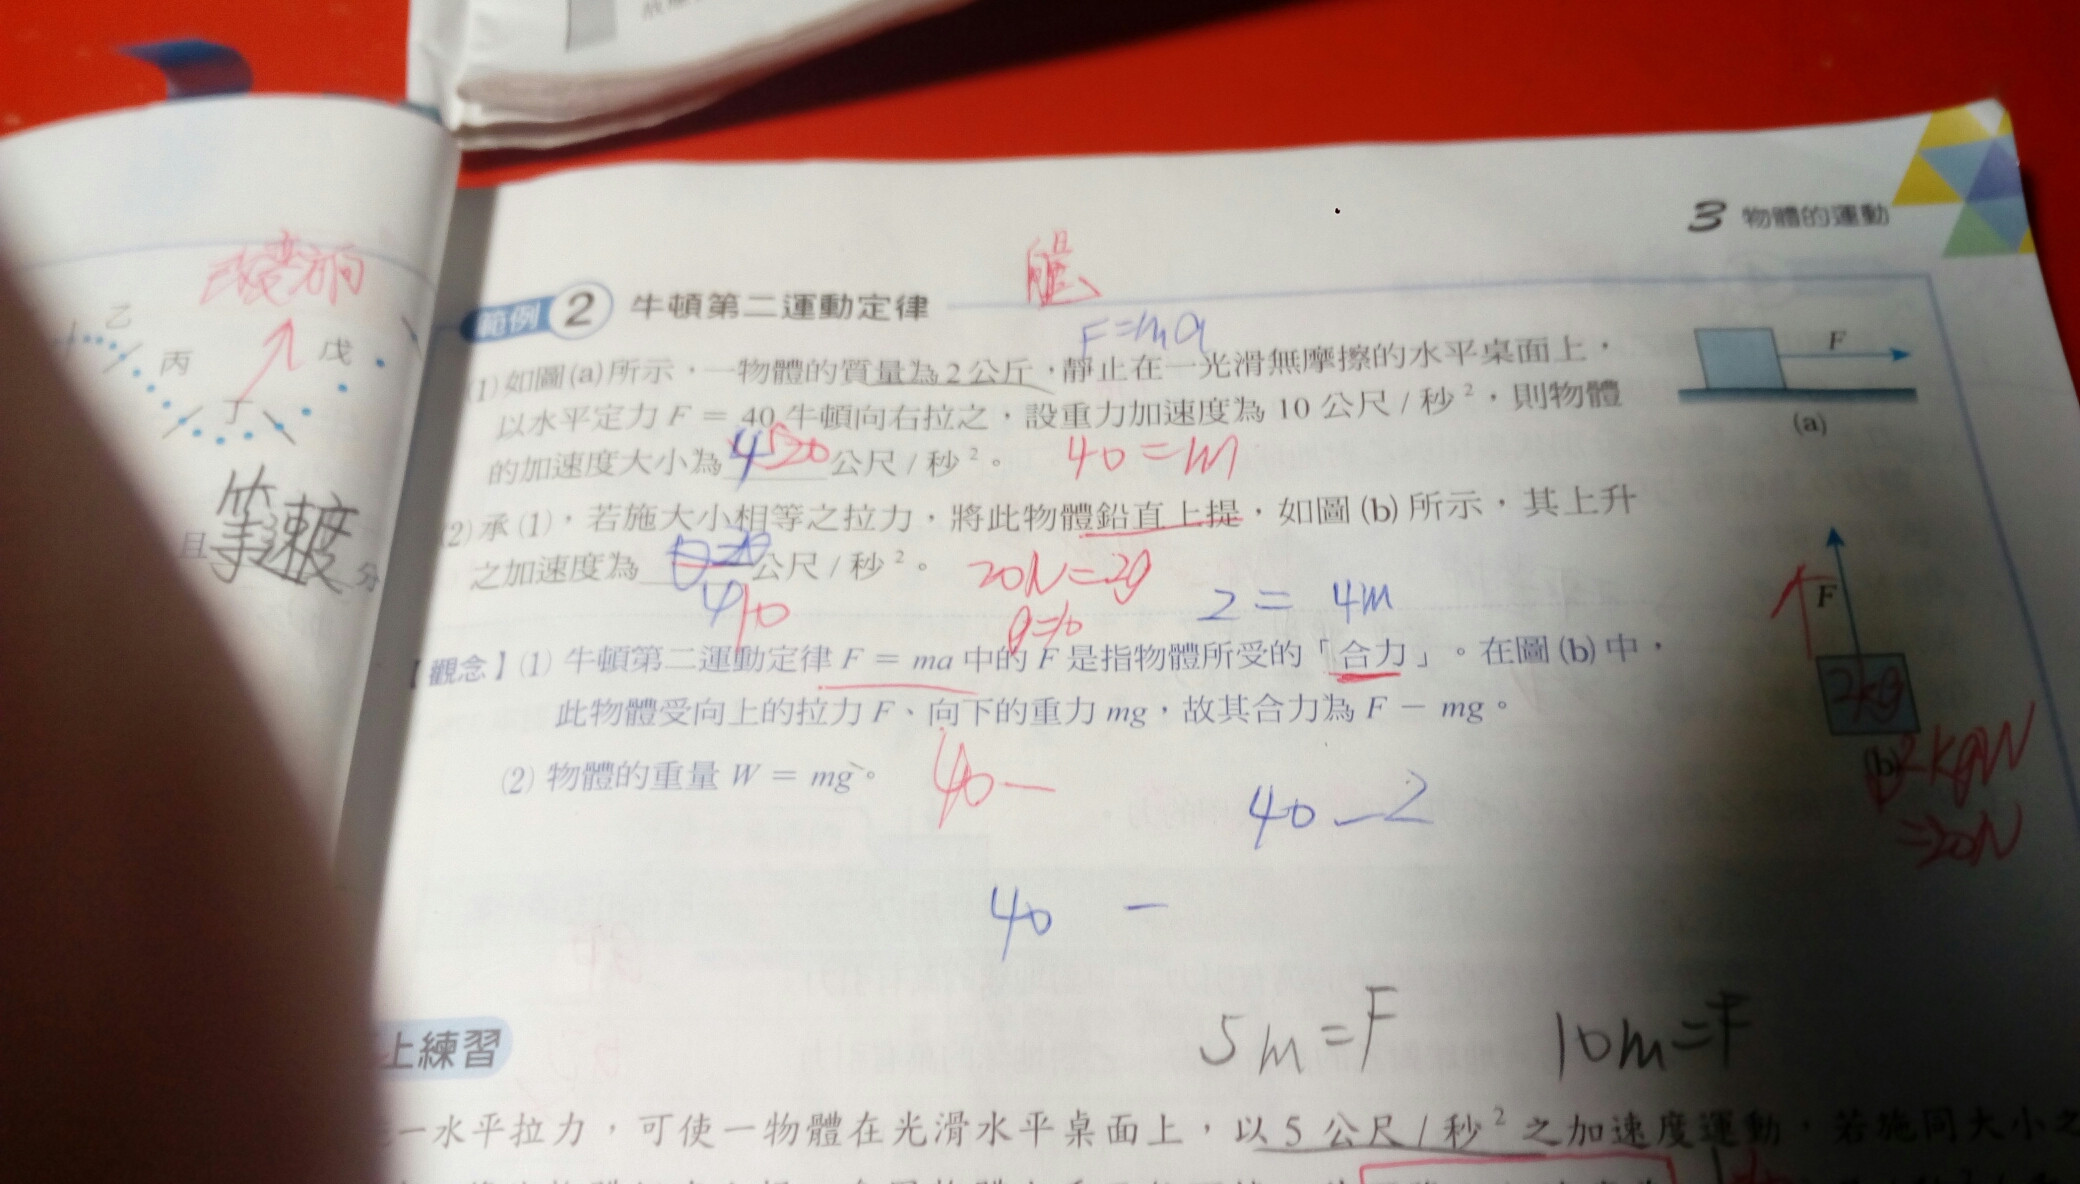 3 物體的運動
改變方向
乙
丙
戊
丁
等速度
且
分
範例 2 牛頓第二運動定律
F=ma
(1) 如圖(a)所示，一物體的質量為2公斤，靜止在一光滑無摩擦的水平桌面上，
以水平定力 F = 40 牛頓向右拉之，設重力加速度為 10 公尺/秒²，則物體
的加速度大小為 20 公尺/秒²。 40=m
F
(a)
(2) 承(1)，若施大小相等之拉力，將此物體鉛直上提，如圖(b)所示，其上升
之加速度為 公尺/秒²。 20N=2g
10
2 = 4m
F
2kg
(b)
=20N
【觀念】(1) 牛頓第二運動定律 F = ma 中的 F 是指物體所受的「合力」。在圖(b)中，
此物體受向上的拉力 F、向下的重力 mg，故其合力為 F － mg。
(2) 物體的重量 W = mg。
40－
40－2
40 －
5m=F 10m=F
上練習
一水平拉力，可使一物體在光滑水平桌面上，以5公尺/秒²之加速度運動，若施同大小之